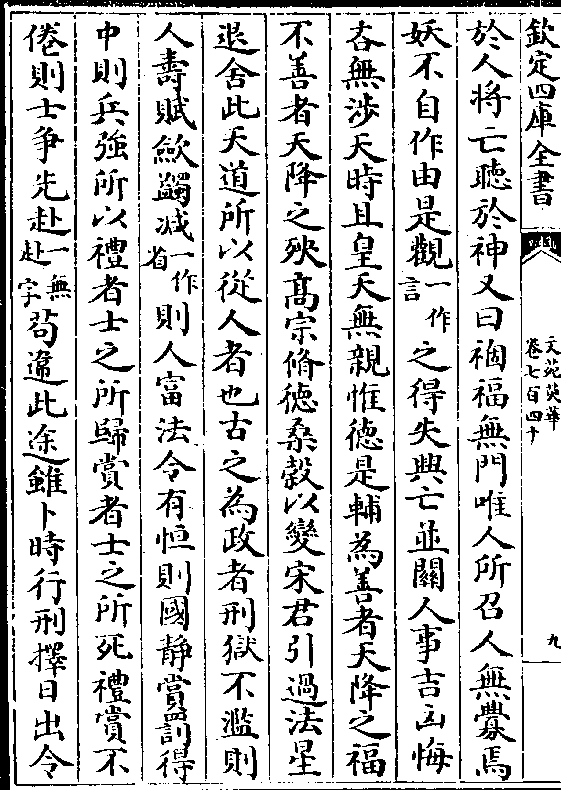 欽定四庫全書
文苑英華
卷七百四十
九
於人将亡聽於神又曰禍福無門唯人所召人無釁焉
妖不自作由是觀一作言之得失興亡並關人事吉凶悔
吝無涉天時且皇天無親惟德是輔為善者天降之福
不善者天降之殃髙宗脩徳桑榖以變宋君引過法星
退舍此天道所以從人者也古之為政者刑獄不濫則
人壽賦歛蠲减一作省則人富法令有恒則國靜賞罰得
中則兵強所以禮者士之所歸賞者士之所死禮賞不
倦則士争先赴一無赴字苟違此途雖卜時行刑擇日出令